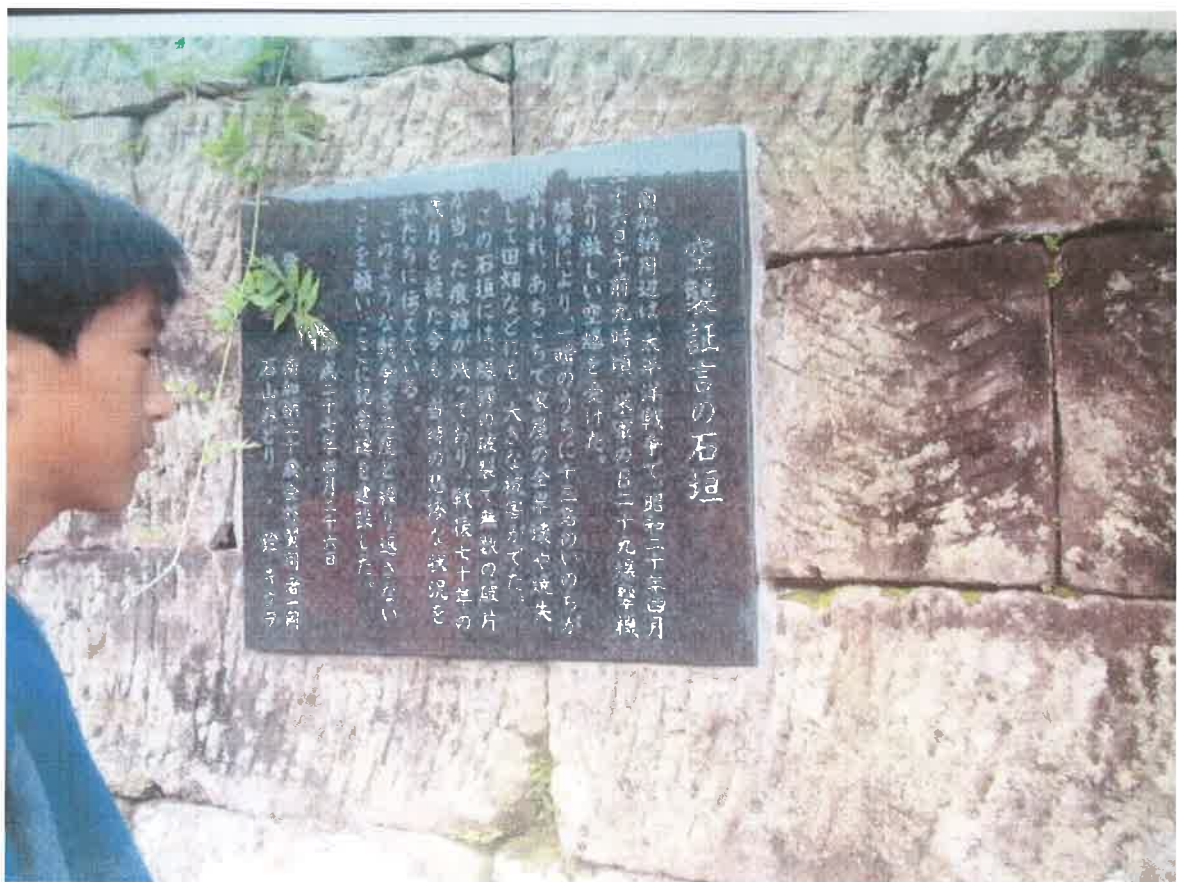 空襲証言の石垣
南加納周辺は、太平洋戦争で、昭和二十年四月
二十六日午前九時頃、米軍のB二十九爆撃機
により激しい空爆を受けた。
爆撃により、一瞬のうちに十三名のいのちが
われ、あちこちで家屋の全半壊や焼失、
して田畑などにも、大きな被害がでた。
この石垣には、爆弾の破裂で無数の破片
が当った痕跡が残っており、戦後七十年の
歳月を経た今も、当時の悲惨な状況を
私たちに伝えている。
このような戦争を二度と繰り返さない
ことを願い、ここに記念碑を建設した。
成二十七年四月二十六日
賛同者一同
石山みどり